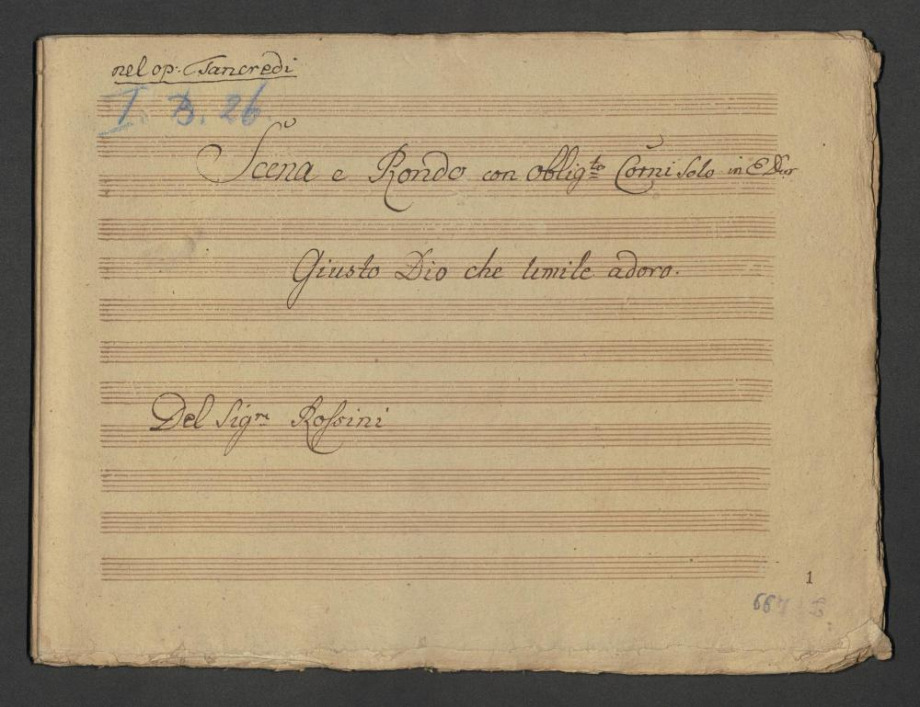 nel op: Tancredi
I. B. 26
Scena e Rondo con obligto Corni Solo in E Dur
Giusto Dio che umile adoro.
Del Sigre Rossini
1
667